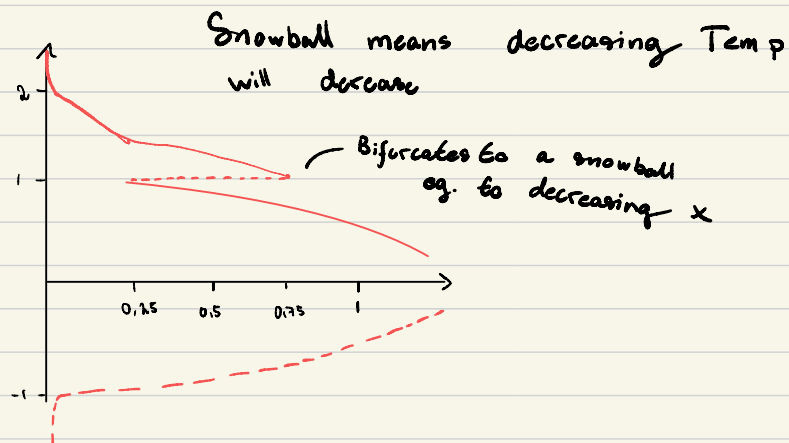 Snowball means decreasing Temp
will decrease
2
Bifurcates to a snowball
eg. to decreasing x
1
0,25 0,5 0,75 1
-1